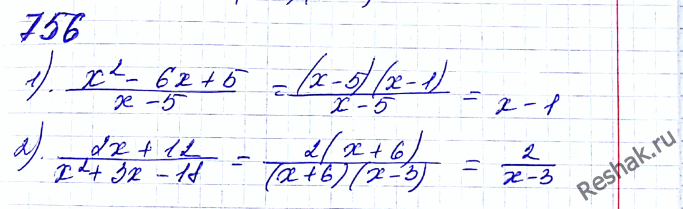 756
1). (x² - 6x + 5)/(x - 5) = ((x - 5)(x - 1))/(x - 5) = x - 1
2). (2x + 12)/(x² + 3x - 18) = (2(x + 6))/((x + 6)(x - 3)) = 2/(x - 3)
Reshak.ru